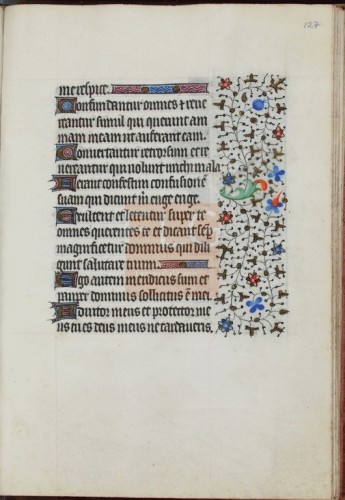 127
me respice.
Confundantur omnes et reue
reantur simul qui querunt ani
mam meam ut auferant eam.
Conuertantur retrorsum et re
uereantur qui uolunt michi mala
Ferant confestim confusionē
suam qui dicunt m̄ euge euge.
Exultent et letentur super te
omnes querentes te et dicant semp̄
magnificetur dominus qui dili
gunt salutare tuum.
Ego autem mendicus sum et
pauper dominus sollicitus ē mei.
Adiutor meus et protector me
us tu es deus meus ne tardaueris.